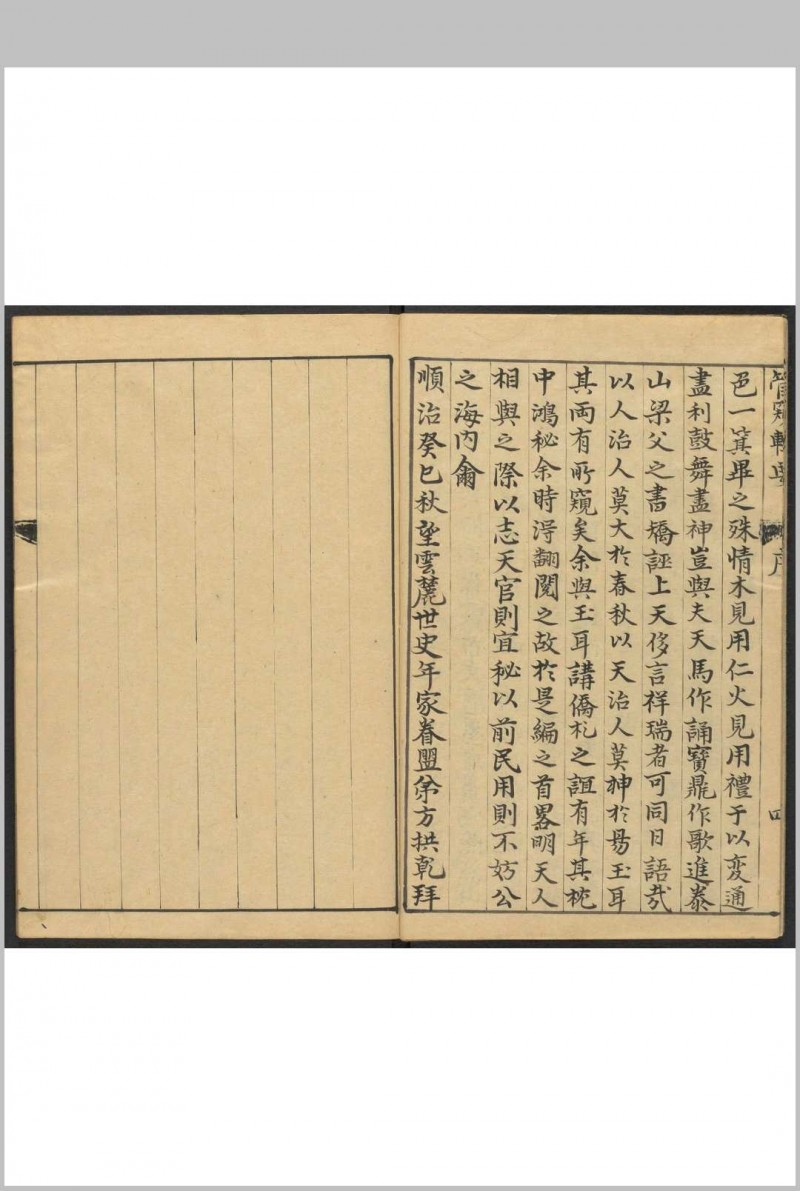 管窺輯要
序
四
邑一箕畢之殊情木見用仁火見用禮于以変通
盡利鼓舞盡神豈與夫天馬作誦寶鼎作歌進泰
山梁父之書矯誣上天侈言祥瑞者可同日語㢤
以人治人莫大於春秋以天治人莫神於昜玉耳
其両有所窺矣余與玉耳講僑札之誼有年其枕
中鴻秘余時淂翻閱之故於是編之首畧明天人
相與之際以志天官則宜秘以前民用則不妨公
之海內爾
順治癸巳秋望雲麓世史年家眷盟弟方拱乾拜